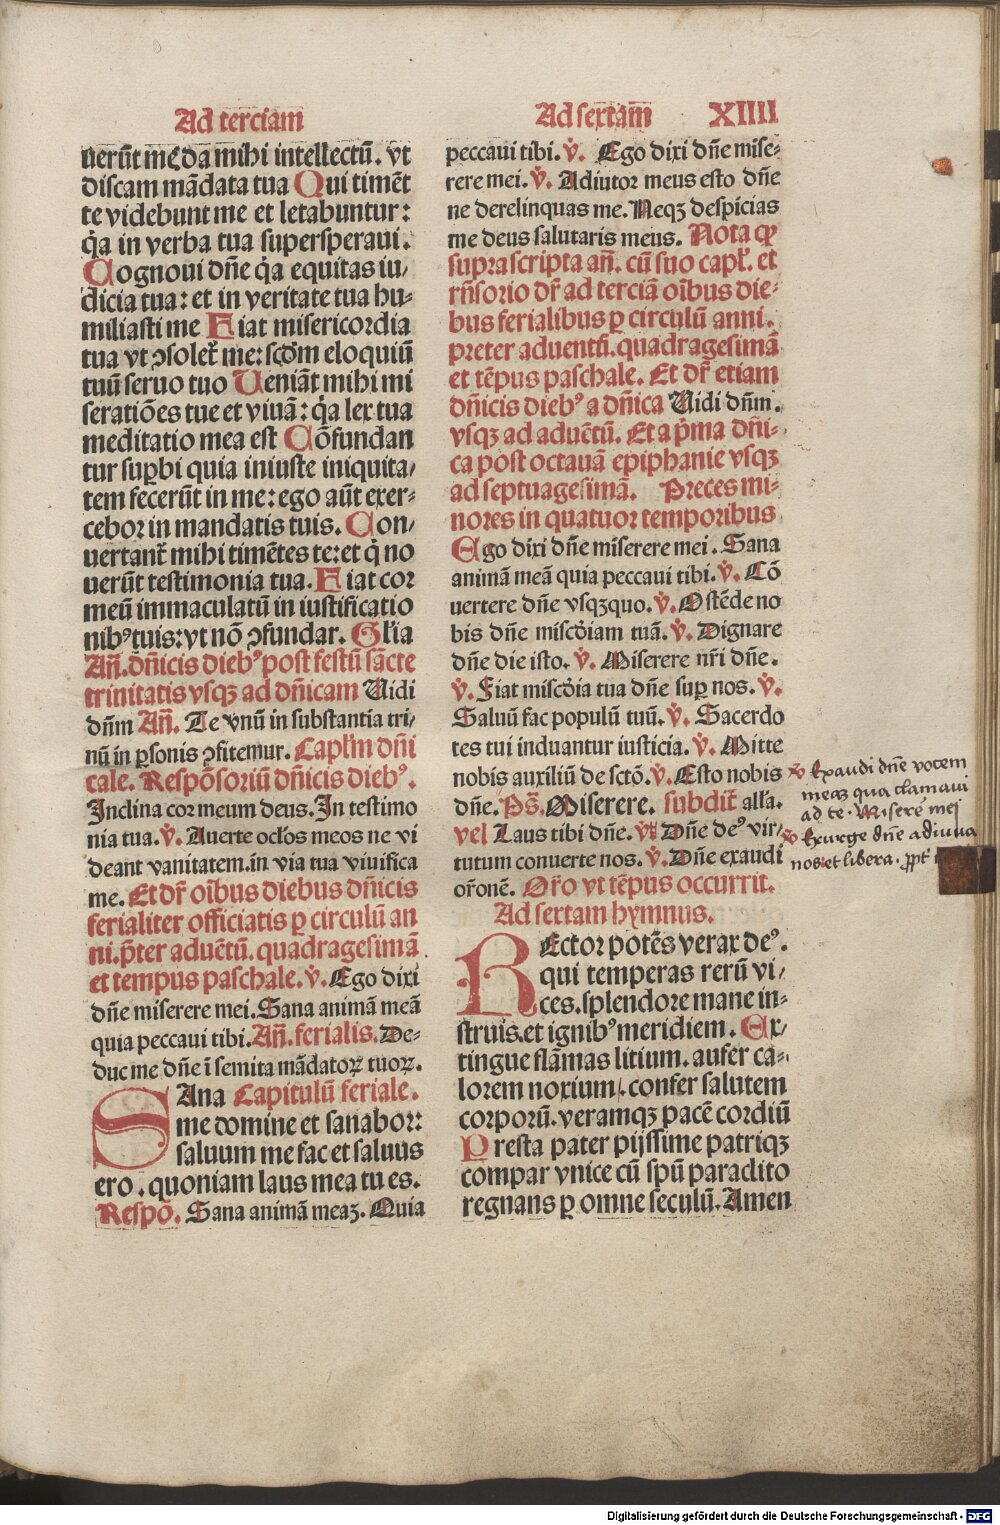 Ad terciam
uerūt me⁊ da mihi intellectū. vt
discam mādata tua Qui timēt
te videbunt me et letabuntur:
q̇a in verba tua supersperaui.
Cognoui dn̄e q̇a equitas iu/
dicia tua: et in veritate tua hu-
miliasti me Fiat misericordia
tua vt ꝯsolet᷑ me: scd̄m eloquiū
tuū seruo tuo Ueniāt mihi mi
seratiōes tue et viuā: q̇a lex tua
meditatio mea est Cōfundan
tur sup̱bi quia iniuste iniquita/
tem fecerūt in me: ego aūt exer-
cebor in mandatis tuis. Con/
uertant᷑ mihi timētes te: et q̇ no
uerūt testimonia tua. Fiat cor
meū immaculatū in iustificatio
nibꝰ tuis: vt nō ꝯfundar. Gl̄ia
Añ. dn̄icis diebꝰ post festū sācte
trinitatis vsqꝫ ad dn̄icam Uidi
dn̄m Añ. Te vnū in substantia tri/
nū in ꝑsonis ꝯfitemur. Capl̄m dn̄i
cale. Respōsoriū dn̄icis diebꝰ.
Inclina cor meum deus. In testimo
nia tua. v̇. Auerte ocl̄os meos ne vi
deant vanitatem. in via tua viuifica
me. Et dr̄ oībus diebus dn̄icis
ferialiter officiatis ꝑ circulū an
ni. p̄ter aduētū. quadragesimā
et tempus paschale. v̇. Ego dixi
dn̄e miserere mei. Sana animā meā
quia peccaui tibi. Añ. ferialis. De-
duc me dn̄e ī semita mādatoꝝ tuoꝝ.
SAna Capitulū feriale.
me domine et sanabor:
saluum me fac et saluus
ero. quoniam laus mea tu es.
Respō. Sana animā meaꝫ. Quia
Ad sextam XIIII
peccaui tibi. v̇. Ego dixi dn̄e mise-
rere mei. v̇. Adiutor meus esto dn̄e
ne derelinquas me. Neqꝫ despicias
me deus salutaris meus. Nota ꝙ
suprascripta añ. cū suo capl̄. et
rn̄sorio dr̄ ad terciā oībus die-
bus ferialibus ꝑ circulū anni.
preter aduentū. quadragesimā
et tēpus paschale. Et dr̄ etiam
dn̄icis diebꝰ a dn̄ica Uidi dn̄m.
vsqꝫ ad aduētū. Et a p̄ma dn̄i-
ca post octauā epiphanie vsqꝫ
ad septuagesimā. Preces mi-
nores in quatuor temporibus
Ego dixi dn̄e miserere mei. Sana
animā meā quia peccaui tibi. v̇. Cō
uertere dn̄e vsqꝫquo. v̇. Ostēde no
bis dn̄e misc̄diam tuā. v̇. Dignare
dn̄e die isto. v̇. Miserere nr̄i dn̄e.
v̇. Fiat misc̄dia tua dn̄e suꝑ nos. v̇.
Saluū fac populū tuū. v̇. Sacerdo
tes tui induantur iusticia. v̇. Mitte
nobis auxiliū de sctō. v̇. Esto nobis
dn̄e. Ps̄. Miserere. subdit᷑ all̄a.
vel Laus tibi dn̄e. v̄s Dn̄e deꝰ vir/
tutum conuerte nos. v̇. Dn̄e exaudi
or̄onē. Or̄o vt tēpus occurrit.
Ad sextam hymnus.
REctor potēs verax deꝰ.
qui temperas rerū vi/
ces. splendore mane in-
struis. et ignibꝰ meridiem. Ex/
tingue flāmas litium. aufer ca-
lorem noxium. confer salutem
corporū. veramqꝫ pacē cordiū
Presta pater pijssime patriqꝫ
compar vnice cū spū paraclito
regnans ꝑ omne seculū. Amen
v̇ Exaudi dn̄e vocem
meaꝫ qua clamaui
ad te. Miserere mei
v̇ Exurge dn̄e adiuua
nos et libera. ꝓpt
Digitalisierung gefördert durch die Deutsche Forschungsgemeinschaft - DFG